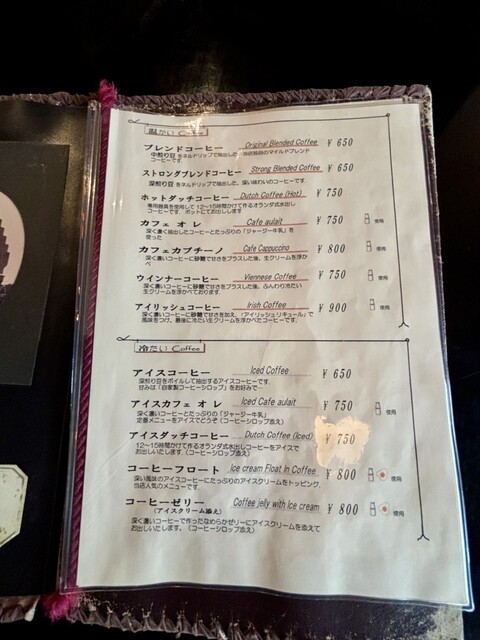 温かい Coffee
ブレンドコーヒー Original Blended Coffee ¥ 650
中煎り豆をネルドリップで抽出した、当店独自のマイルドブレンド
コーヒーです。
ストロングブレンドコーヒー Strong Blended Coffee ¥ 650
深煎り豆をネルドリップで抽出した、深い味わいのコーヒーです。
ホットダッチコーヒー Dutch Coffee (Hot) ¥ 750
専用器具を使用して 12〜15時間かけて作るオランダ式水出し
コーヒーです、ポットにてお出しします
カフェ オ レ Cafe aulait ¥ 750 使用
深く濃く抽出したコーヒーとたっぷりの「ジャージー牛乳」を
使った
カフェカプチーノ Cafe Cappuccino ¥ 800 使用
深く濃いコーヒーに砂糖で甘さをプラスした後、生クリームを浮か
べ
ウインナーコーヒー Viennese Coffee ¥ 750 使用
深く濃いコーヒーに砂糖で甘さをプラスした後、ふんわり冷たい
生クリームを浮かべております
アイリッシュコーヒー Irish Coffee ¥ 900
深く濃いコーヒーに砂糖で甘さを加え、「アイリッシュリキュール」で
風味をつけ、最後に冷たい生クリームを浮かべたコーヒーです。
冷たい Coffee
アイスコーヒー Iced Coffee ¥ 650
深煎り豆をボイルして抽出するアイスコーヒーです。
甘みは「自家製コーヒーシロップ」をお好みで
アイスカフェ オ レ Iced Cafe aulait ¥ 750 使用
深く濃いコーヒーとたっぷりの「ジャージー牛乳」
定番メニューをアイスでどうぞ (コーヒーシロップ添え)
アイスダッチコーヒー Dutch Coffee (Iced) ¥ 750
12〜15時間かけて作るオランダ式水出しコーヒーをアイスで
お出しいたします。(コーヒーシロップ添え)
コーヒーフロート Ice cream Float In Coffee ¥ 800 使用
深い風味のアイスコーヒーにたっぷりのアイスクリームをトッピング、
当店人気のメニューです。
コーヒーゼリー Coffee jelly with Ice cream ¥ 800 使用
(アイスクリーム添え)
深く濃いコーヒーで作ったなめらかゼリーにアイスクリームを添えて
お出しいたします。(コーヒーシロップ添え)